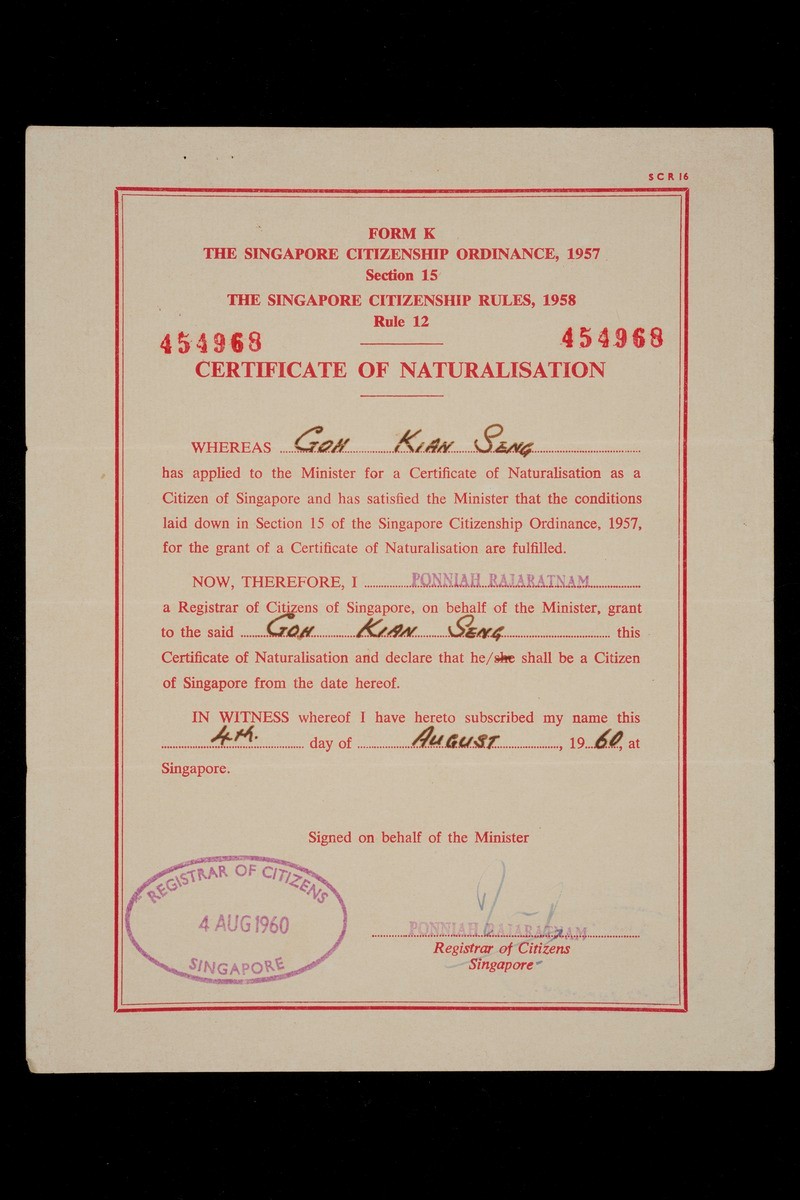 SCR 16
FORM K
THE SINGAPORE CITIZENSHIP ORDINANCE, 1957
Section 15
THE SINGAPORE CITIZENSHIP RULES, 1958
Rule 12
454968 454968
CERTIFICATE OF NATURALISATION
WHEREAS GOH KIAN SENG
has applied to the Minister for a Certificate of Naturalisation as a
Citizen of Singapore and has satisfied the Minister that the conditions
laid down in Section 15 of the Singapore Citizenship Ordinance, 1957,
for the grant of a Certificate of Naturalisation are fulfilled.
NOW, THEREFORE, I PONNIAH RAJARATNAM
a Registrar of Citizens of Singapore, on behalf of the Minister, grant
to the said GOH KIAN SENG this
Certificate of Naturalisation and declare that he/she shall be a Citizen
of Singapore from the date hereof.
IN WITNESS whereof I have hereto subscribed my name this
4th. day of AUGUST, 1960, at
Singapore.
Signed on behalf of the Minister
REGISTRAR OF CITIZENS
4 AUG 1960
SINGAPORE
PONNIAH RAJARATNAM
Registrar of Citizens
Singapore